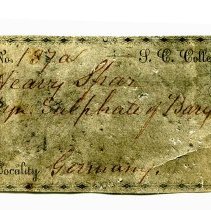 No. 187a S. C. Colle
Heavy Spar
Syn. Sulphate of Bary
Locality Germany.